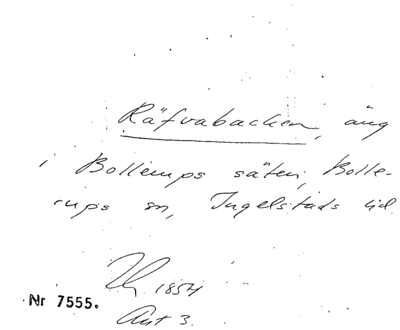 Räfvabacken, äng
i Bollerups säteri, Bolle-
rups sn, Ingelstads hd.
1854
Nr 7555.
Akt 3.